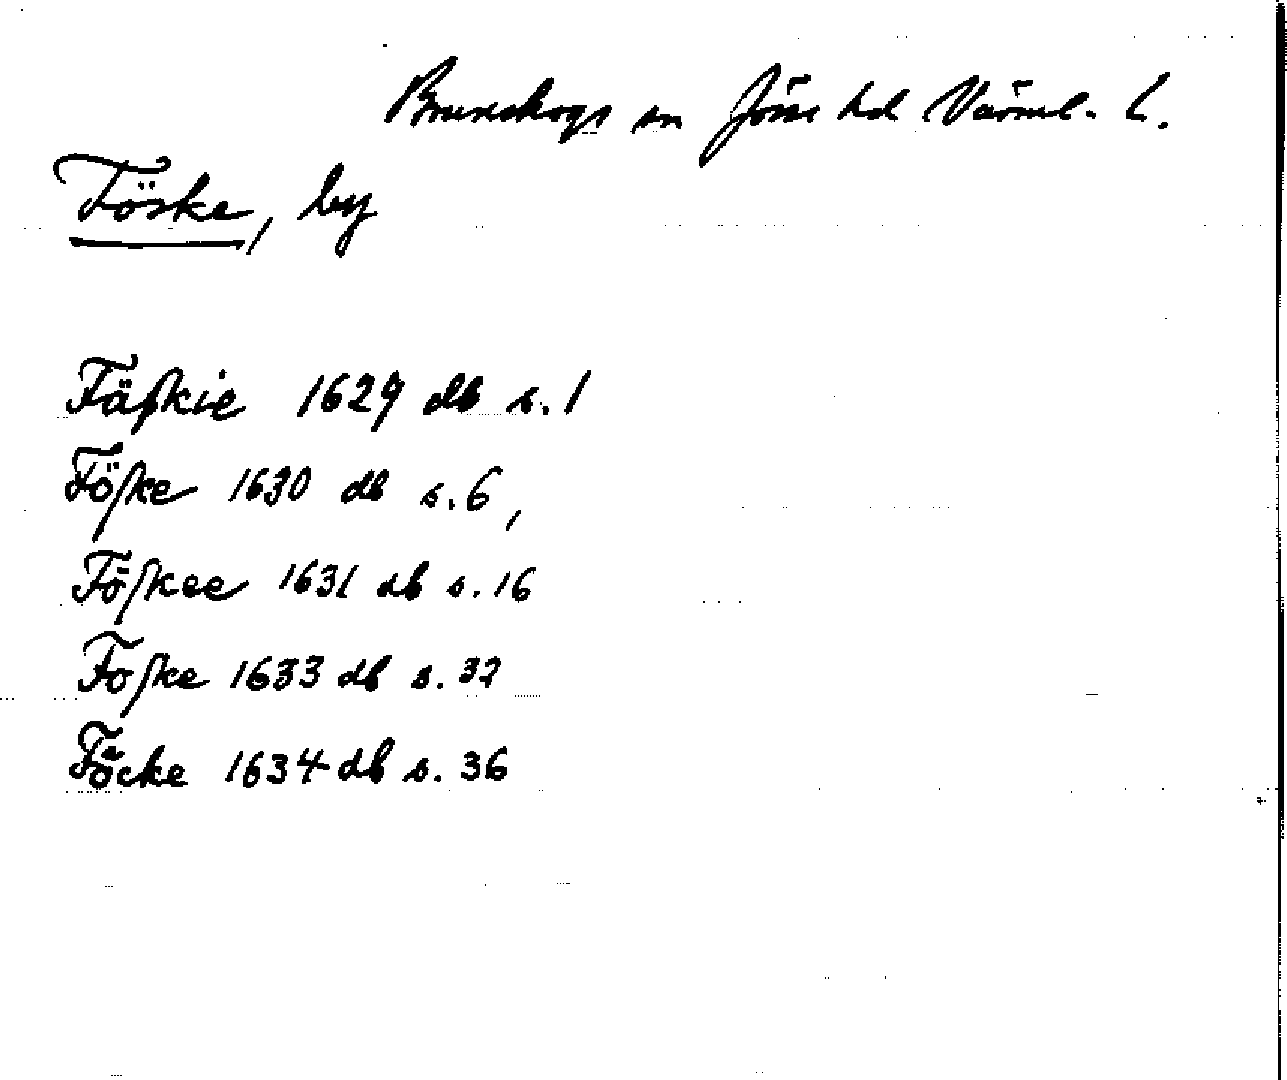 Brunskogs sn Jöss hd Värml. l.
Föske, by
Fäſkie 1629 db s. 1
Föſke 1630 db s. 6,
Föſkee 1631 db s. 16
Foſke 1633 db s. 32
Föcke 1634 db s. 36